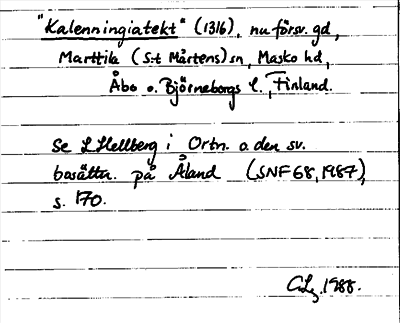 "Kalenningiatekt" (1316), nu försv. gd,
Marttila (S:t Mårtens) sn, Masko hd,
Åbo o. Björneborgs l., Finland.
Se L Hellberg i Ortn. o. den sv.
bosättn. på Åland (SNF 68, 1987),
s. 170.
1988.